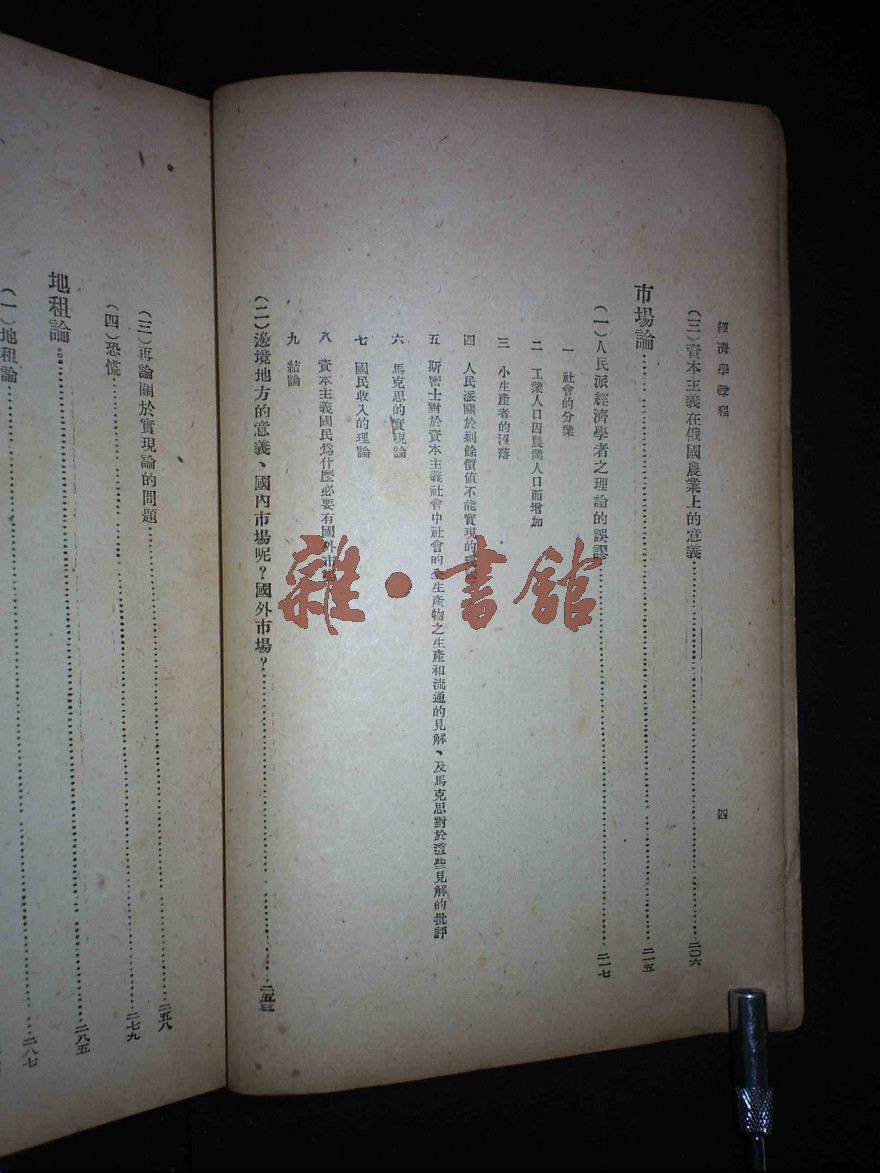 經濟學敎程
四
(三)資本主義在俄國農業上的意義……二〇六
市場論……二一五
(一)人民派經濟學者之理論的誤謬……二一七
一 社會的分業
二 工業人口因農業人口而增加
三 小生產者的沒落
四 人民派關於剩餘價值不能實現的理
五 斯密士對於資本主義社會中社會的全生產物之生產和流通的見解、及馬克思對於這些見解的批評
六 馬克思的實現論
七 國民收入的理論
八 資本主義國民爲什麼必要有國外市
九 結論
(二)邊境地方的意義、國內市場呢？國外市場？……二五三
(三)再論關於實現論的問題……二五八
(四)恐慌……二七九
地租論……二八五
(一)地租論……二八七
雜·書館